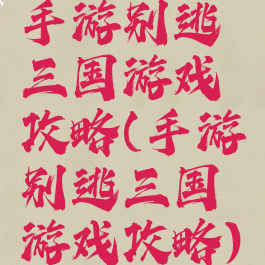 手游别逃
三国游戏
攻略(手游
别逃三国
游戏攻略)